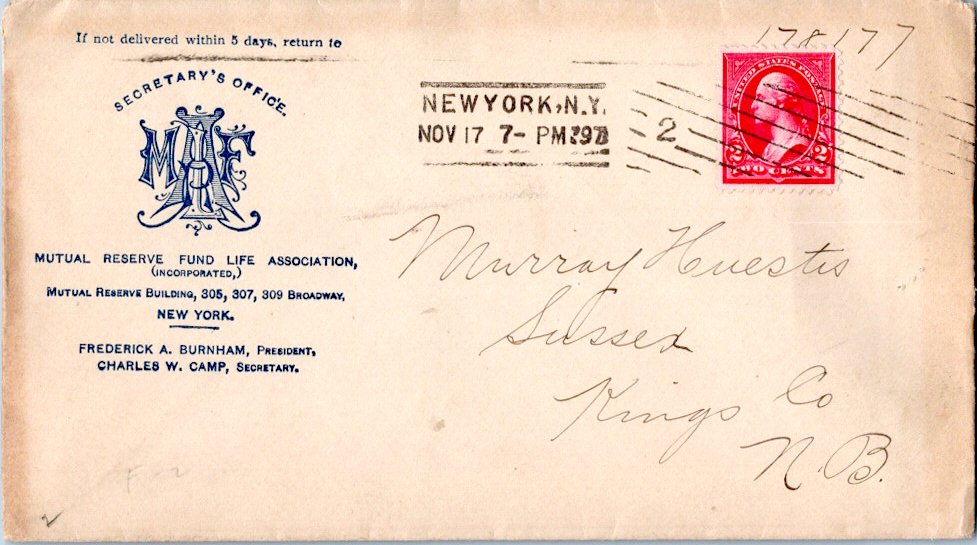 If not delivered within 5 days, return to
SECRETARY'S OFFICE.
MUTUAL RESERVE FUND LIFE ASSOCIATION,
(INCORPORATED,)
MUTUAL RESERVE BUILDING, 305, 307, 309 BROADWAY,
NEW YORK.
FREDERICK A. BURNHAM, PRESIDENT,
CHARLES W. CAMP, SECRETARY.
NEW YORK, N.Y.
NOV 17 7- PM '97
2
178177
UNITED STATES POSTAGE
2 2
TWO CENTS
Murray Huestis
Sussex
Kings Co
N.B.